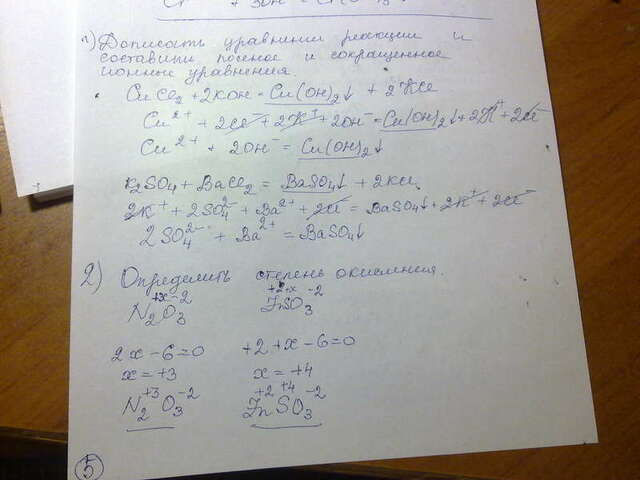 + 3OH⁻ =
1) Дописать уравнения реакции и
составить полное и сокращенное
ионные уравнения.
CuCl₂ + 2KOH = Cu(OH)₂↓ + 2KCl
Cu²⁺ + 2Cl⁻ + 2K⁺ + 2OH⁻ = Cu(OH)₂↓ + 2K⁺ + 2Cl⁻
Cu²⁺ + 2OH⁻ = Cu(OH)₂↓
K₂SO₄ + BaCl₂ = BaSO₄↓ + 2KCl
2K⁺ + 2SO₄²⁻ + Ba²⁺ + 2Cl⁻ = BaSO₄↓ + 2K⁺ + 2Cl⁻
2SO₄²⁻ + Ba²⁺ = BaSO₄↓
2) Определить степень окисления.
+x -2 +2 +x -2
N₂O₃ ZnSO₃
2x - 6 = 0 +2 + x - 6 = 0
x = +3 x = +4
+3 -2 +2 +4 -2
N₂O₃ ZnSO₃
5